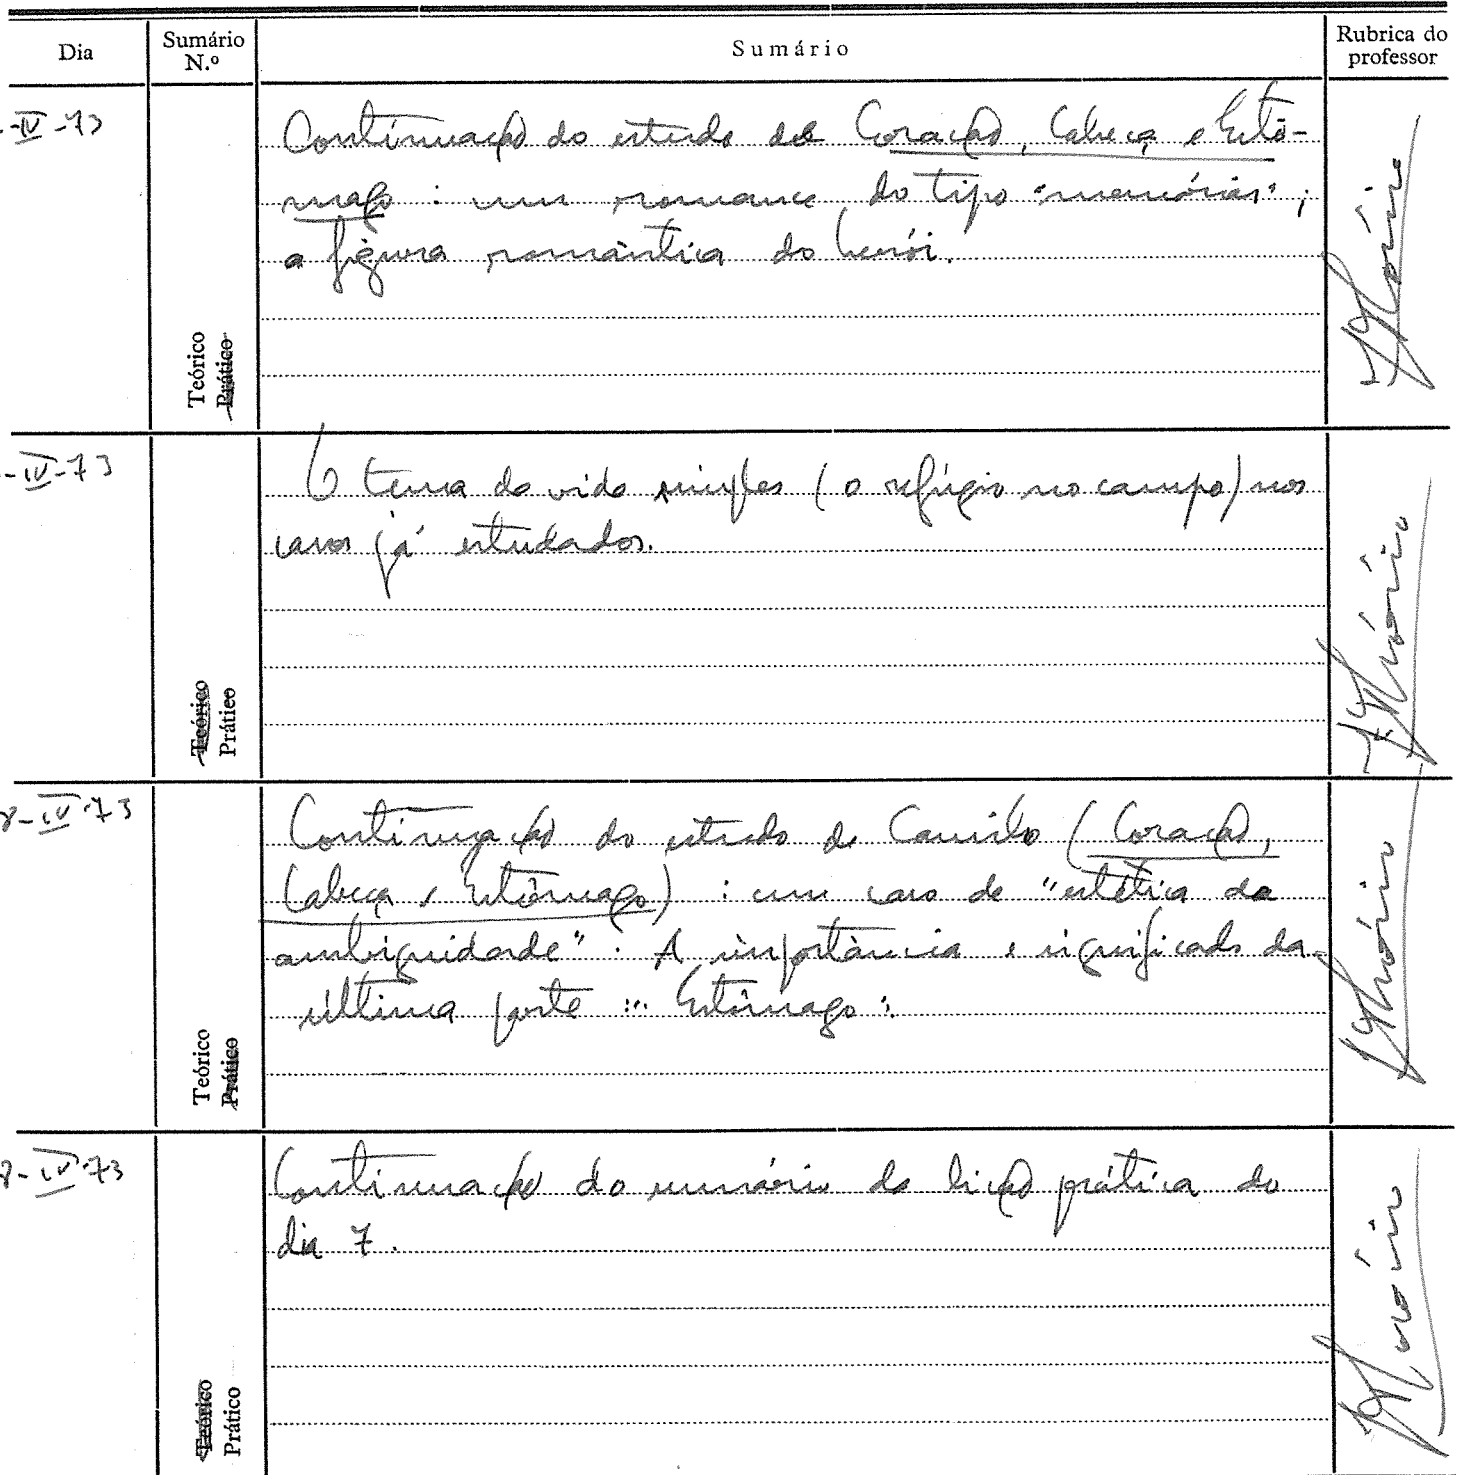 Dia
Sumário N.º
Sumário
Rubrica do professor
-IV-73
Continuação do estudo de Coração, Cabeça e Estô-
mago: um romance do tipo "memórias";
a figura romântica do herói.
Teórico
Prático
-IV-73
O tema da vida simples (o refúgio no campo) nos
casos já estudados.
Teórico
Prático
8-IV-73
Continuação do estudo de Camilo (Coração,
Cabeça e Estômago): um caso de "estética da
ambiguidade". A importância e significado da
última parte: "Estômago".
Teórico
Prático
8-IV-73
Continuação do sumário da lição prática do
dia 7.
Teórico
Prático